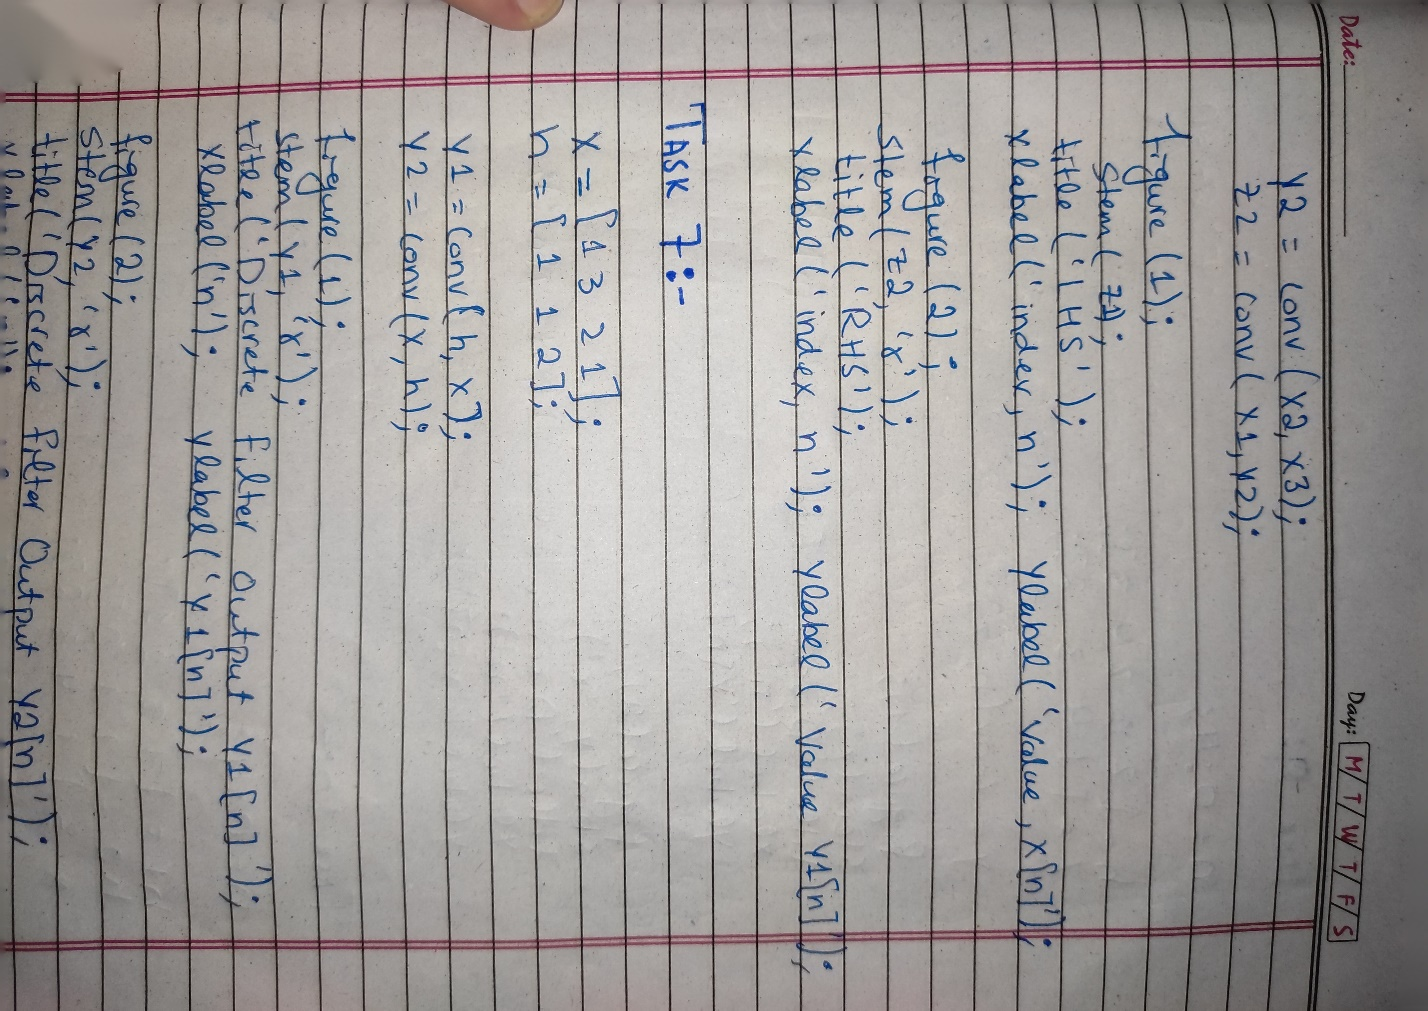 Date:
Day: M/T/W/T/F/S
y2 = conv (x2, x3);
z2 = conv( x1, y2);
figure (1);
stem( z1);
title ('LHS');
xlabel('index, n'); ylabel('Value, x[n]');
figure (2);
stem( z2, 'x');
title ('RHS');
xlabel('index, n'); ylabel('Value y1[n]');
TASK 7:-
x = [1 3 2 1];
h = [1 1 2];
y1 = conv(h, x);
y2 = conv(x, h);
figure(1);
stem(y1, 'x');
title('Discrete filter output y1[n]');
xlabel('n'); ylabel('y1[n]');
figure(2);
stem(y2, 'x');
title('Discrete filter Output y2[n]');